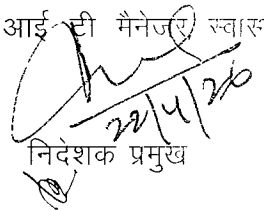 आई टी मैनेजर
22/4/20
निदेशक प्रमुख